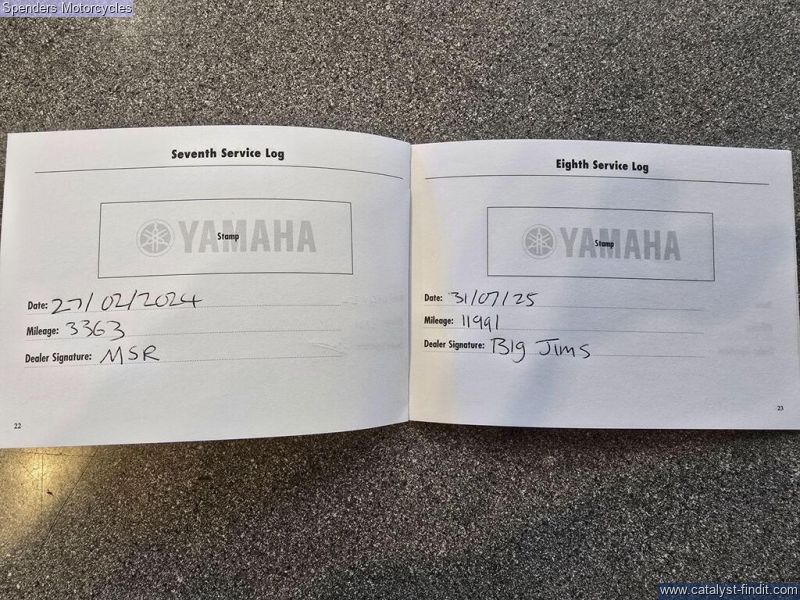 Spenders Motorcycles
Seventh Service Log
YAMAHA
Stamp
Date: 27/02/2024
Mileage: 3363
Dealer Signature: MSR
22
Eighth Service Log
YAMAHA
Stamp
Date: 31/07/25
Mileage: 11991
Dealer Signature: Big Jims
23
www.catalyst-findit.com